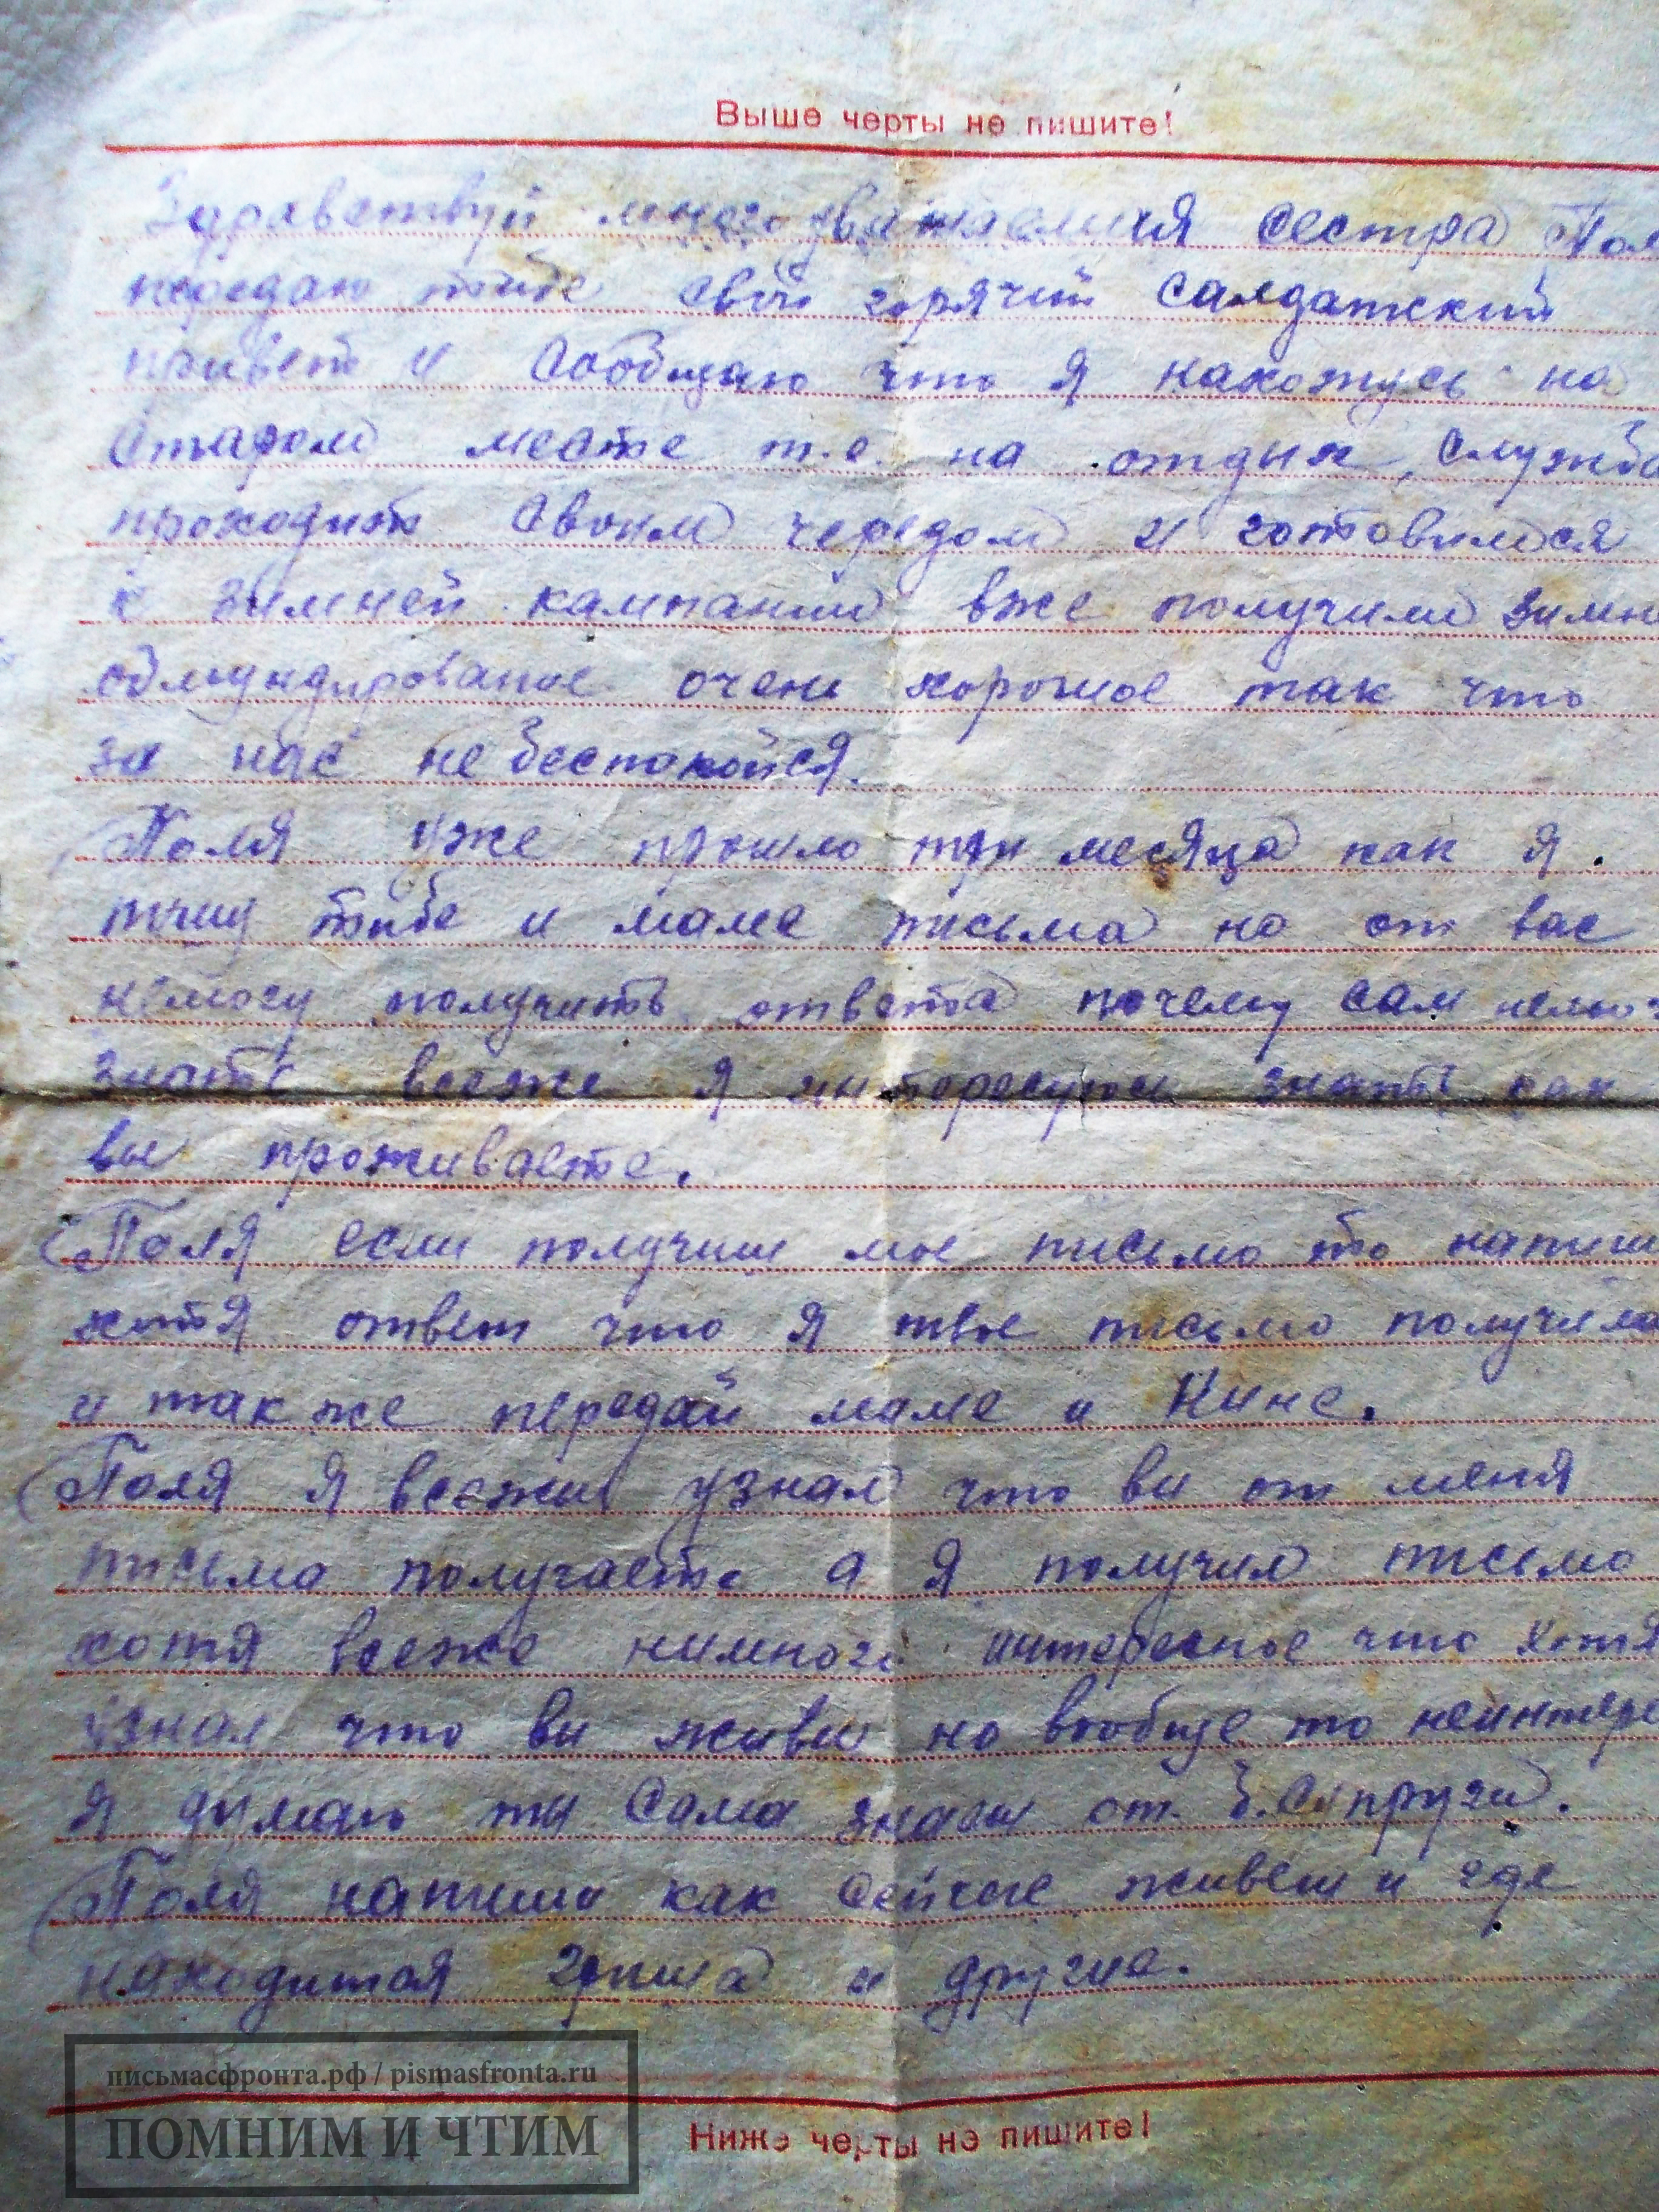 Выше черты не пишите!
Здравствуй многоуважаемия сестра Поля
передаю тибе свой горячий салдатский
привет и сообщаю что я нахожусь на
старом месте т.е. на отдых, служба
проходит своим чередом и готовимся
к зимней кампании вже получили зимне
обмундирование очень хорошое так что
за нас не беспокойся.
Поля уже прошло три месяца как я
пишу тибе и маме письма но от вас
немогу получить ответа почему сам немог
знать всеже я интересуюсь знать как
вы проживаете.
Поля если получиш мое письмо то напиши
хотя ответ что я твое письмо получила
и также передай маме и Нине.
Поля я всеже узнал что ви от меня
письма получаете а я получил письмо
хотя всеже нимного интересное что хотя
узнал что ви живы но вообще то неинтере
я думаю ти сама знаеш от Б. Супруги.
Поля напиши как сейчас живеш и где
находится Гриша и другие.
письмасфронта.рф / pismasfronta.ru
ПОМНИМ И ЧТИМ
Ниже черты не пишите!